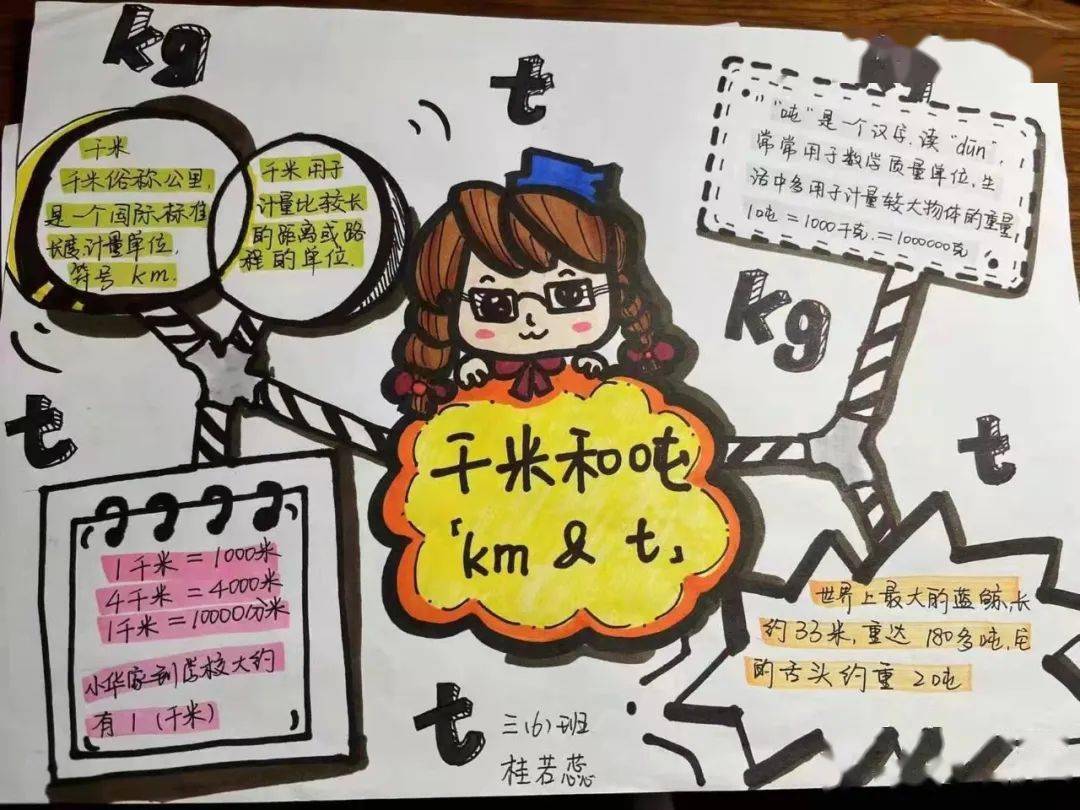 kg
t
千米
千米俗称公里,
是一个国际标准
长度计量单位,
符号 km.
千米用于
计量比较长
的距离或路
程的单位.
"吨"是一个汉字,读"dūn",
常常用于数学质量单位,生
活中多用于计量较大物体的重量,
10吨=1000千克.=1000000克
kg
t
t
千米和吨
「km & t」
1千米=1000米
4千米=4000米
1千米=10000分米
小华家到学校大约
有 1 (千米)
世界上最大的蓝鲸,长
约33米,重达 180多吨,它
的舌头约重 2吨
t
三(6)班
桂若蕊